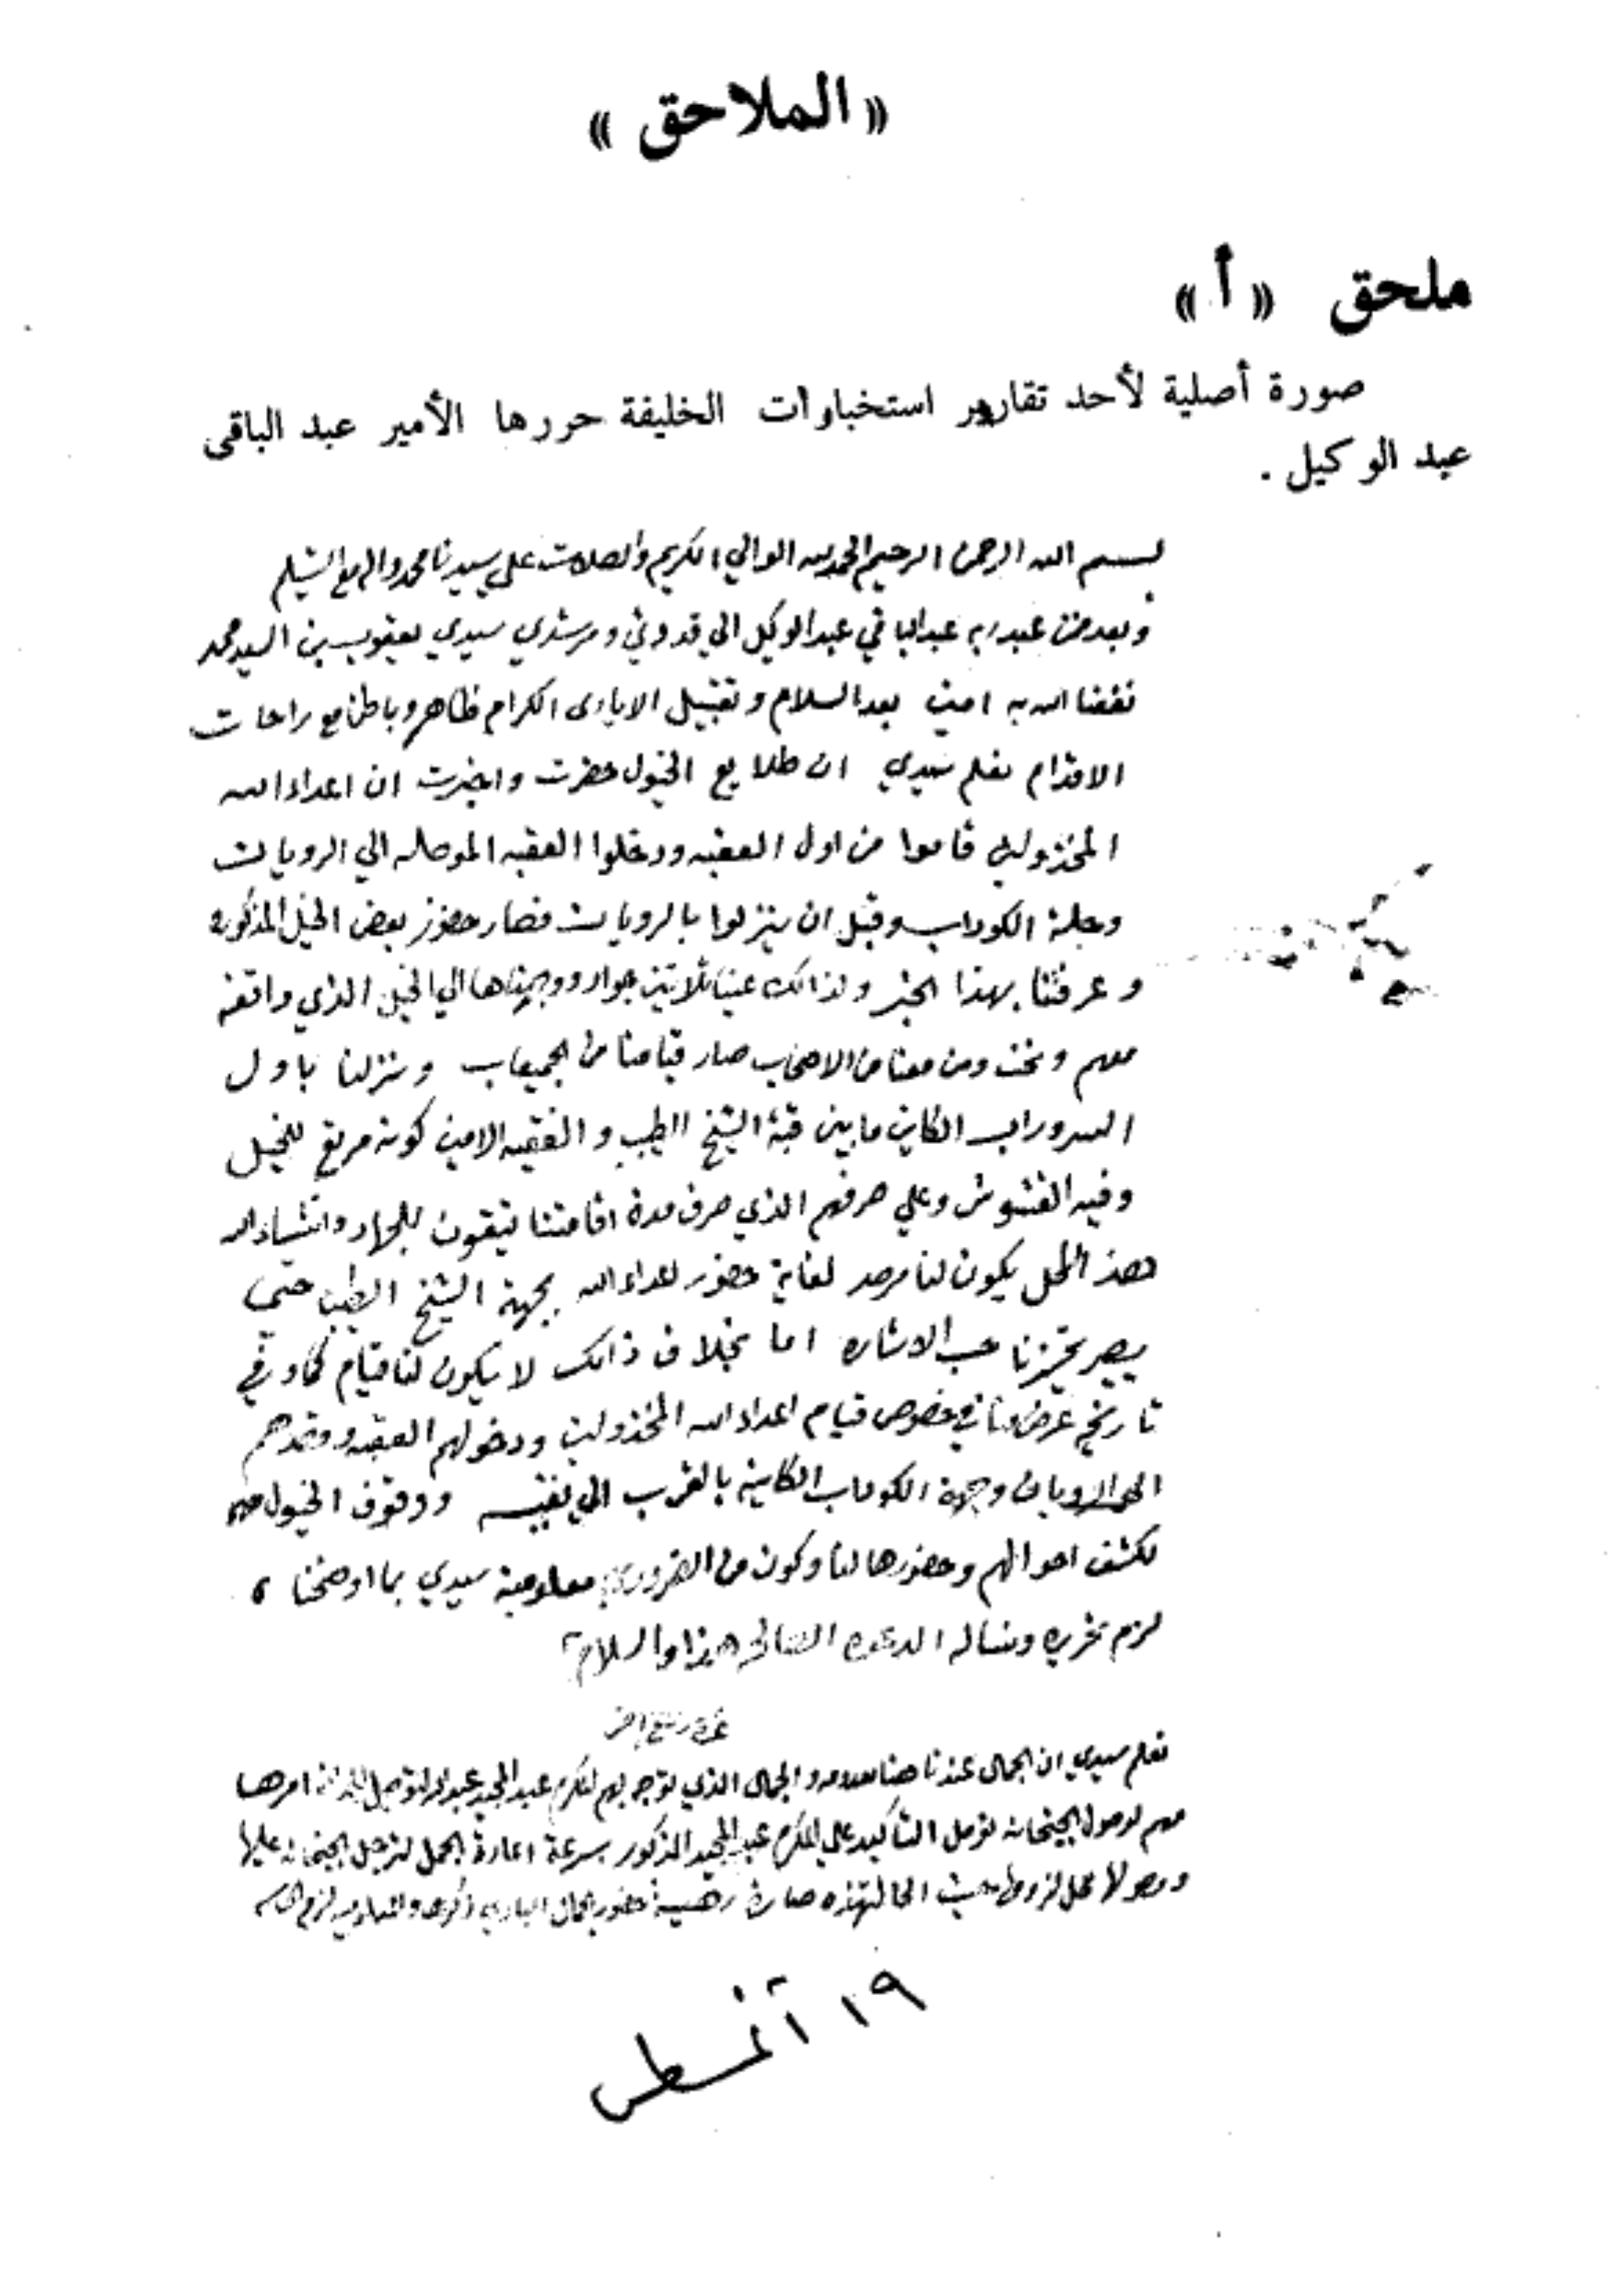 « الملاحق »
ملحق « أ »
صورة أصلية لأحد تقارير استخباوات الخليفة حررها الأمير عبد الباقى
عبد الوكيل .
بسم الله الرحمن الرحيم الحمد لله الوالي الكريم والصلات على سيدنا محمد واله مع التسليم
وبعد من عبد ربه عبد الباقي عبد الوكيل الي قدوتي ومرشدي سيدي يعقوب بن السيد محمد
نفعنا الله به امين بعد السلام وتقبيل الايادى الكرام ظاهر وباطنا مع راحات
الاقدام نعلم سيدي ان طلايع الخيول حضرت واخبرت ان اعداء الله
المخذولين قاموا من اول العقبه ودخلوا العقبه الموصله الي الرويات
وحلة الكوداب وقبل ان ينزلوا بالرويات فصار حضور بعض الخيل المذكوره
وعرفتنا بهذا الخبر ولذالك عينا ثلاتين جواد ووجهناها الي الخيل الذي واقفه
معهم ونحن ومن معنا من الاصحاب صار قيامنا من الجميعاب ونزلنا باول
السروراب الكاين ما بين قبة الشيخ الطيب والفقيه الامين كونه مريع للخيل
وفيه القشوش وعلي صرفهم الذي صرف مدة اقامتنا يتقون للجهاد وانشاء الله
هذا المحل يكون لنا مرصد لغاية حضور اعداء الله بجهة الشيخ الطيب حتى
يصير حسب الاشاره اما بخلاف ذالك لا يكون لنا قيام
تاريخ عرضنا في خصوص قيام اعداء الله المخذولين ودخولهم العقبه وقصدهم
الى الرويان وجهة الكوداب الكاينه بالقرب الي ووقوف الخيول معهم
لكشف احوالهم وحضورها لنا وكون من الضروري معلومية سيدي بما اوضحنا
لزم تحريره ونساله الدعوه الصالحه هذا والسلام
غرة ربيع اخر
نعلم سيدي ان الجمال عندنا هنا والجمال الذي توجه بهم المكرم عبد المجيد امرها
مهم لوصول الجبخانه نؤمل التأكيد علي المكرم عبد المجيد المذكور بسرعة اعادة الجمل عليها
ووصولها محل لزومها حيث الحالة هذه صارة حضور الجمال لزم
١٩ أغسطس